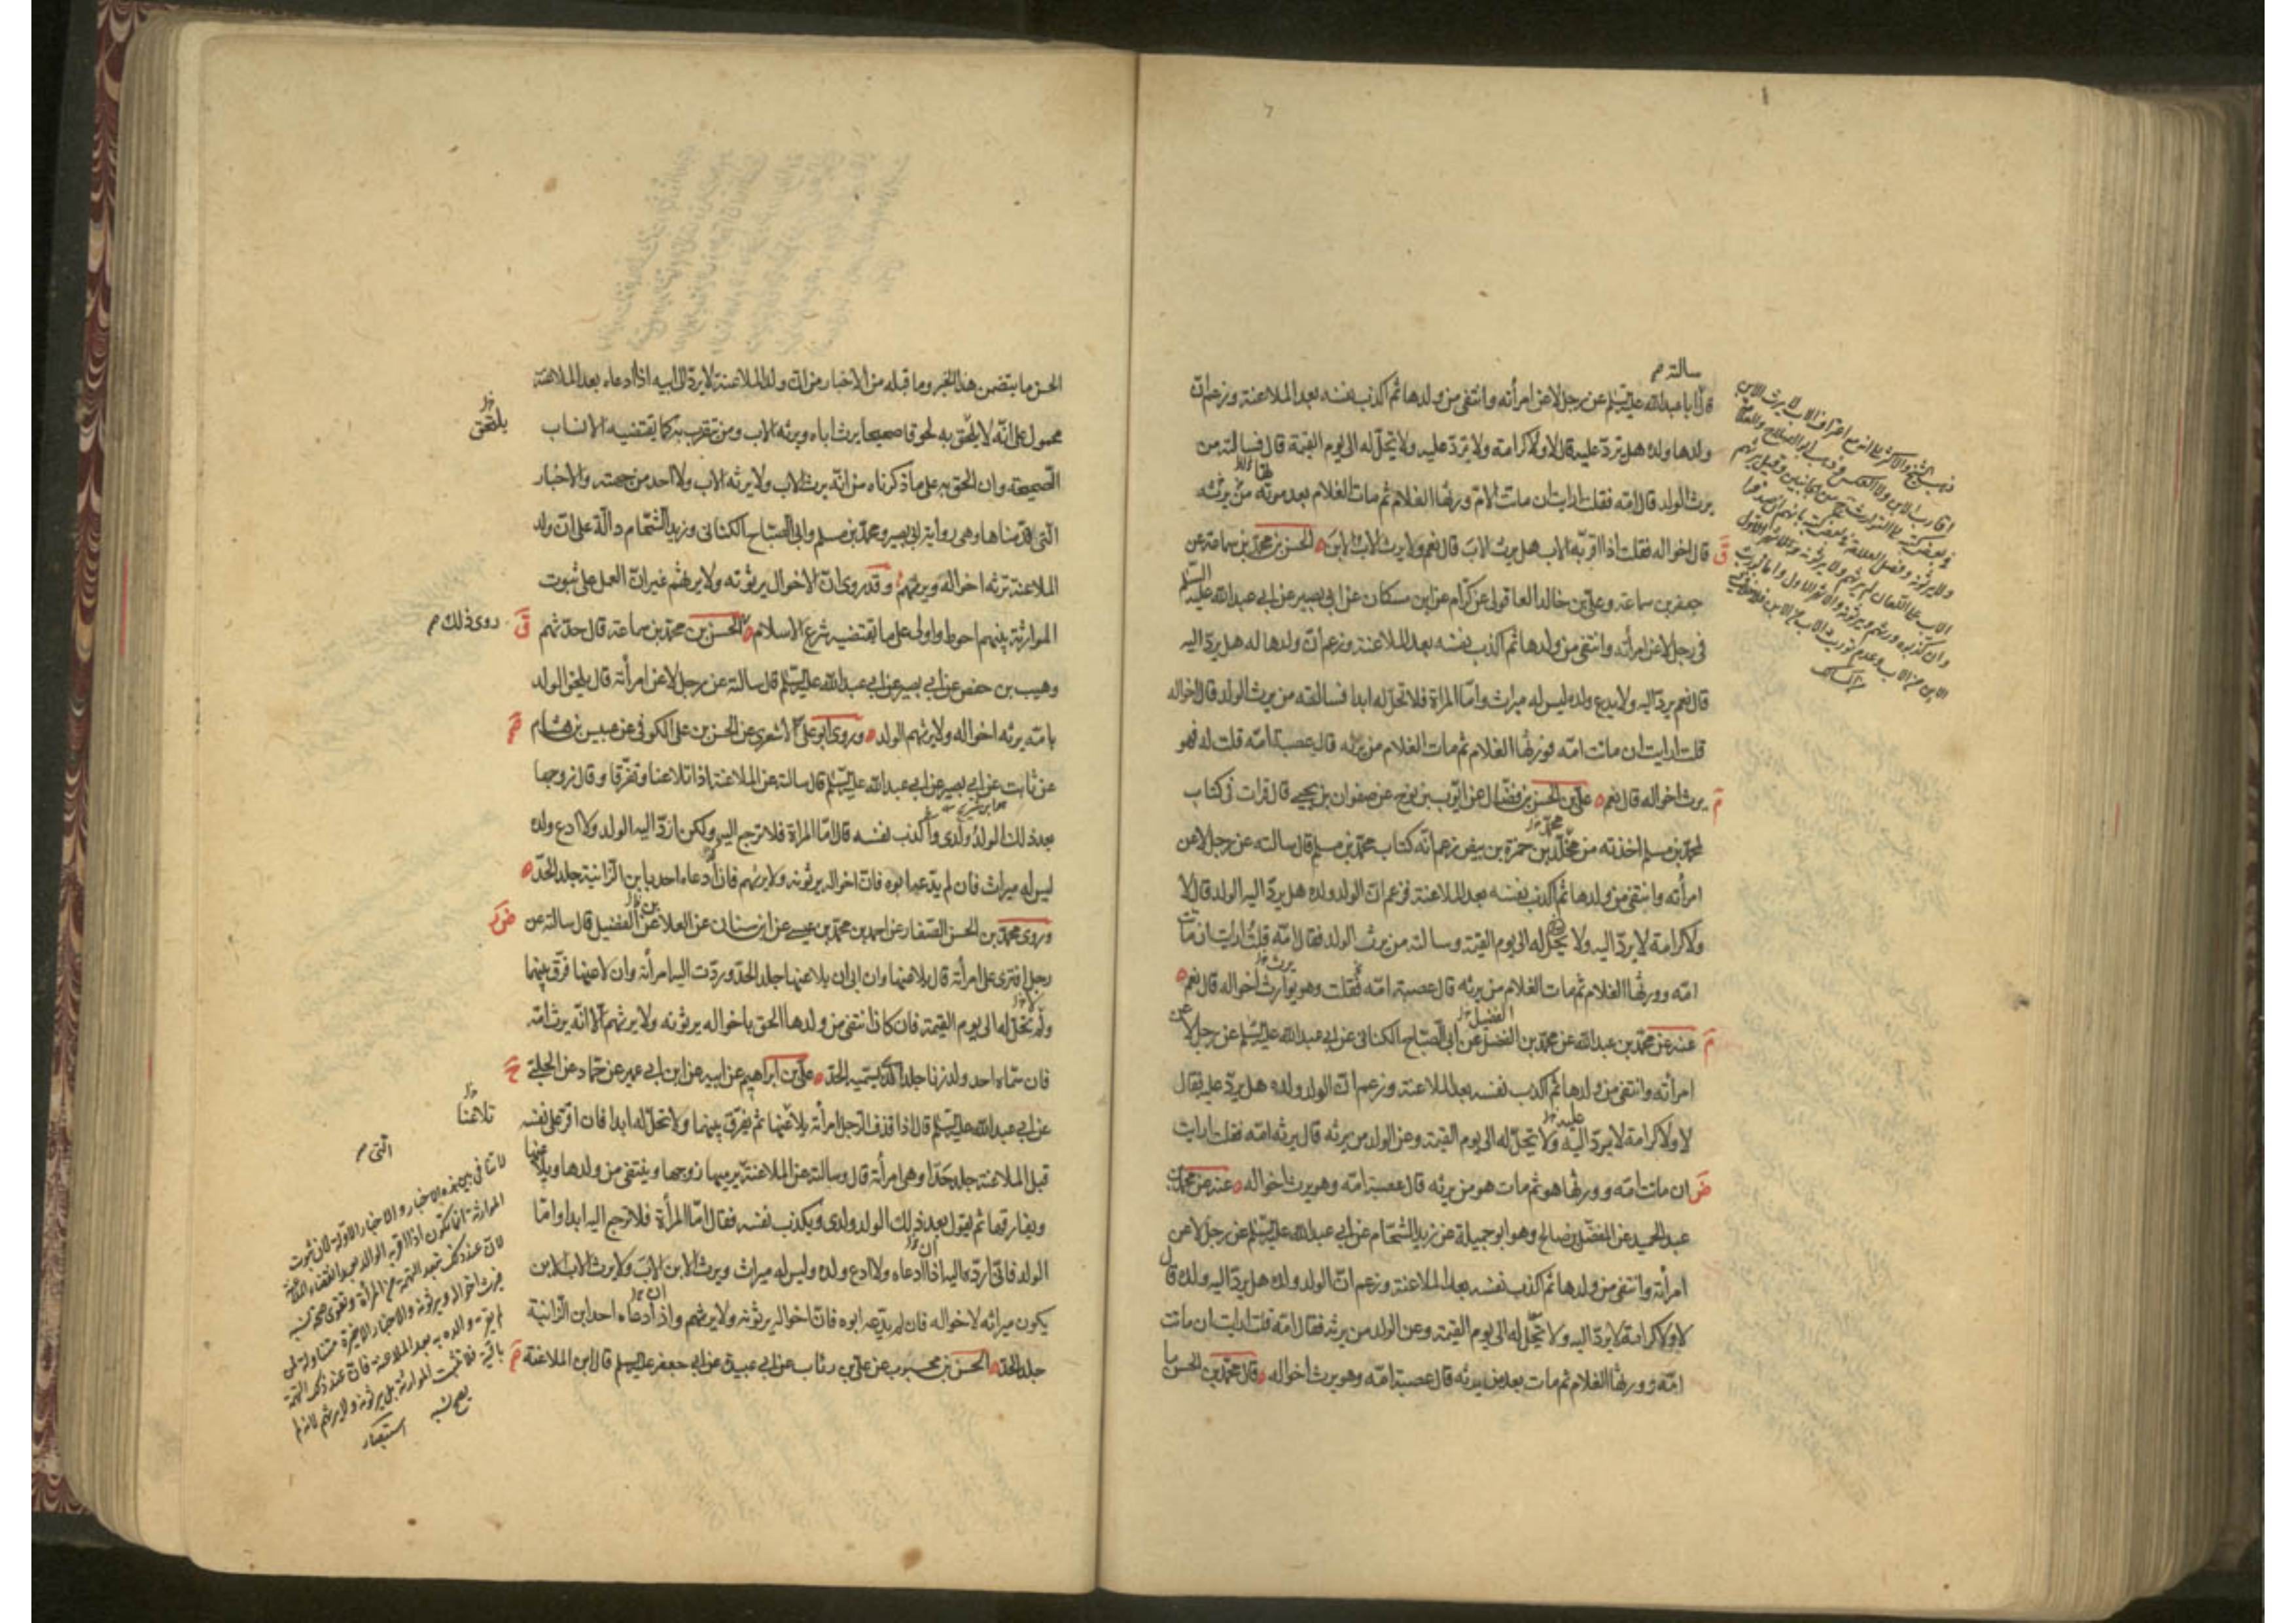 سالته م
قال ابا عبد الله عليه السلم عن رجل لاعن امرأته وانتفى من ولدها ثم اكذب نفسه بعد الملاعنة وزعم ان
ولدها ولده هل تردّ عليه قال لا ولا كرامة ولا تردّ عليه ولا تحلّ له الى يوم القيمة قال فسالته من
يرث الولد قال امّه فقلت ارايت ان ماتت الامّ وورثها الغلام ثم مات الغلام بعد موته من يرثه
قال اخواله فقلت اذا اقرّ به الاب هل يرث الاب قال نعم ولا يرث الاب الابن الحسن بن محمد بن سماعة عن
جعفر بن سماعة وعلي بن خالد العاقولى عن كرّام عن ابن مسكان عن ابى بصير عن ابى عبد الله عليه السلم
فى رجل لاعن امرأته وانتفى من ولدها ثم اكذب نفسه بعد الملاعنة وزعم ان ولدها له هل يردّ اليه
قال نعم يردّ اليه ولا يدع ولده ليس له ميراث وامّا المرأة فلا تحلّ له ابدا فسالته من يرث الولد قال اخواله
قلت ارايت ان ماتت امّه فورثها الغلام ثم مات الغلام من يرثه قال عصبة امّه قلت له فهو
يرث اخواله قال نعم علي بن الحسن بن فضّال عن ايّوب بن نوح عن صفوان بن يحيى قال قرات فى كتاب
لمحمد بن مسلم اخذته من مخلّد بن حمزة بن بيض زعم انّه كتاب محمد بن مسلم قال سالته عن رجل لاعن
امرأته وانتفى من ولدها ثم اكذب نفسه بعد الملاعنة فزعم ان الولد ولده هل يردّ اليه الولد قال لا
ولا كرامة لا يردّ اليه ولا تحلّ له الى يوم القيمة وسالته من يرث الولد فقال امّه قلت ارايت ان ماتت
امّه وورثها الغلام ثم مات الغلام من يرثه قال عصبة امّه فقلت وهو يوارث اخواله قال نعم
عنه عن محمد بن عبد الله عن محمد بن الفضل عن ابى الصّباح الكنانى عن ابى عبد الله عليه السلم عن رجل لاعن
امرأته وانتفى من ولدها ثم اكذب نفسه بعد الملاعنة وزعم ان الولد ولده هل يردّ عليه قال
لا ولا كرامة لا يردّ اليه ولا تحلّ له الى يوم القيمة وعن الولد من يرثه قال يرثه امّه فقلت ارايت
ان ماتت امّه وورثها هو ثم مات هو من يرثه قال عصبة امّه وهو يرث اخواله عنه عن محمد بن
عبد الحميد عن المفضّل بن صالح وهو ابو جميلة عن زيد الشحّام عن ابى عبد الله عليه السلم عن رجل لاعن
امرأته وانتفى من ولدها ثم اكذب نفسه بعد الملاعنة وزعم ان الولد ولده هل يردّ اليه ولده قال
لا ولا كرامة لا يردّ اليه ولا تحلّ له الى يوم القيمة وعن الولد من يرثه فقال امّه قلت ارايت ان ماتت
امّه وورثها الغلام ثم مات بعد من يرثه قال عصبة امّه وهو يرث اخواله قال محمد بن الحسن ما
الحسن ما يتضمن هذا الخبر وما قبله من الاخبار من ان ولد الملاعنة لا يردّ الى ابيه اذا ادعاه بعد الملاعنة
محمول على انّه لا يلحق به لحوقا صحيحا يرث اباه ويرثه الاب ومن يتقرب به كما يقتضيه الانساب
يلتحق
الصحيحة وان الحق به على ما ذكرناه من انّه يرث الاب ولا يرثه الاب ولا احد من جهته والاخبار
التى قدّمناها وهى رواية ابى بصير ومحمد بن مسلم وابى الصّباح الكنانى وزيد الشحّام دالّة على ان ولد
الملاعنة ترثه اخواله ويرثهم وقد روى انّ الاخوال يرثونه ولا يرثهم غير ان العمل على ثبوت
الموارثة بينهم احوط واولى على ما يقتضيه شرع الاسلام الحسن بن محمد بن سماعة قال حدّثهم
روى ذلك م
وهيب بن حفص عن ابى بصير عن ابى عبد الله عليه السلم قال سالته عن رجل لاعن امرأته قال يلحق الولد
بامّه يرثه اخواله ولا يرثهم الولد وروى ابو على الاشعرى عن الحسن بن على الكوفى عن عبيس بن هشام
عن ثابت عن ابى بصير عن ابى عبد الله عليه السلم قال سالته عن الملاعنة اذا تلاعنا وتفرّقا وقال زوجها
بعد ذلك الولد ولدى واكذب نفسه قال امّا المرأة فلا ترجع اليه ولكن اردّ اليه الولد ولا ادع ولده
ليس له ميراث فان لم يدّعه ابوه فانّ اخواله يرثونه ولا يرثهم فان دعاه احد بابن الزانية جلد الحدّ
وروى محمد بن الحسن الصّفار عن احمد بن محمد بن عيسى عن ابن سنان عن العلا عن الفضيل قال سالته عن
رجل افترى على امرأته قال يلاعنها وان ابى ان يلاعنها جلد الحدّ وردّت اليه امرأته وان لاعنها فرّق بينهما
ولم تحلّ له الى يوم القيمة فان كان انتفى من ولدها الحق باخواله يرثونه ولا يرثهم الا انّه يرث امّه
فان سمّاه احد ولد زنا جلد الذى يسمّيه الحدّ علي بن ابراهيم عن ابيه عن ابن ابى عمير عن حمّاد عن الحلبى
عن ابى عبد الله عليه السلم قال اذا قذف الرّجل امرأته يلاعنها ثم يفرّق بينهما ولا تحلّ له ابدا فان اقرّ على نفسه
تلاعنا
قبل الملاعنة جلد حدّا وهى امرأته قال وسالته عن الملاعنة يرميها زوجها وينتفى من ولدها ويلاعنها
ويفارقها ثم يقول بعد ذلك الولد ولدى ويكذب نفسه فقال امّا المرأة فلا ترجع اليه ابدا وامّا
الولد فانّى اردّه اليه اذا ادعاه ولا ادع ولده وليس له ميراث ويرث الابن الاب ولا يرث الاب الابن
يكون ميراثه لاخواله فان لم يدّعه ابوه فانّ اخواله يرثونه ولا يرثهم واذا دعاه احد ابن الزانية
جلد الحدّ الحسن بن محبوب عن علي بن رئاب عن ابى عبيدة عن ابى جعفر عليه السلم قال ابن الملاعنة
التى م
لا تنافى بين هذه الاخبار والاخبار الاوّلة لان ثبوت
الموارثة انما تكون اذا اقرّ به الوالد بعد انقضاء الملاعنة
لان عند ذلك تبعد التهمة من المرأة وتقوى صحة نسبه
فيرث اخواله ويرثونه والاخبار الاخيرة متناولة لمن
لم يقرّ والده به بعد الملاعنة فان عند ذلك التهمة
باقية فلا تثبت الموارثة بل يرثونه ولا يرثهم لانه لم
يصح نسبه
استبصار